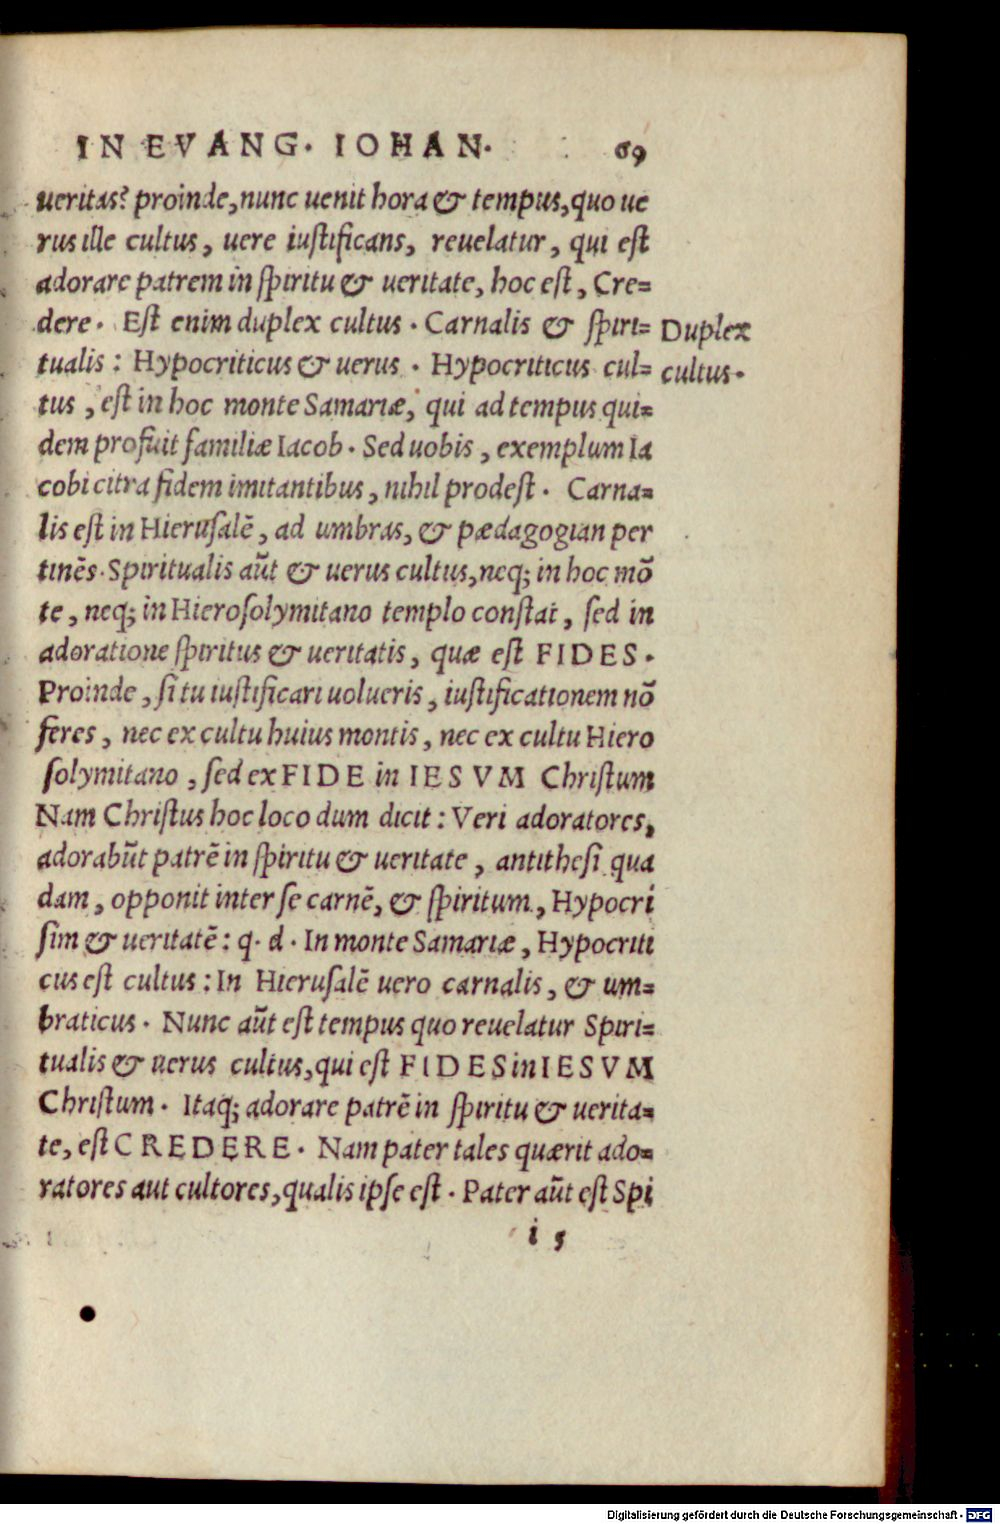 IN EVANG. IOHAN. 69
ueritas? proinde, nunc uenit hora & tempus, quo ue
rus ille cultus, uere iustificans, reuelatur, qui est
adorare patrem in spiritu & ueritate, hoc est, Cre=
dere. Est enim duplex cultus. Carnalis & spiri=
Duplex
tualis: Hypocriticus & uerus. Hypocriticus cul=
cultus.
tus, est in hoc monte Samariæ, qui ad tempus qui=
dem profuit familiæ Iacob. Sed uobis, exemplum Ia
cobi citra fidem imitantibus, nihil prodest. Carna=
lis est in Hierusalē, ad umbras, & pædagogian per
tinēs. Spiritualis aūt & uerus cultus, neq; in hoc mō
te, neq; in Hierosolymitano templo constat, sed in
adoratione spiritus & ueritatis, quæ est FIDES.
Proinde, si tu iustificari uolueris, iustificationem nō
feres, nec ex cultu huius montis, nec ex cultu Hiero
solymitano, sed ex FIDE in IESVM Christum
Nam Christus hoc loco dum dicit: Veri adoratores,
adorabūt patrē in spiritu & ueritate, antithesi qua
dam, opponit inter se carnē, & spiritum, Hypocri
sim & ueritatē: q. d. In monte Samariæ, Hypocriti
cus est cultus: In Hierusalē uero carnalis, & um=
braticus. Nunc aūt est tempus quo reuelatur Spiri=
tualis & uerus cultus, qui est FIDES in IESVM
Christum. Itaq; adorare patrē in spiritu & uerita=
te, est CREDERE. Nam pater tales quærit ado=
ratores aut cultores, qualis ipse est. Pater aūt est Spi
i 5
Digitalisierung gefördert durch die Deutsche Forschungsgemeinschaft - DFG